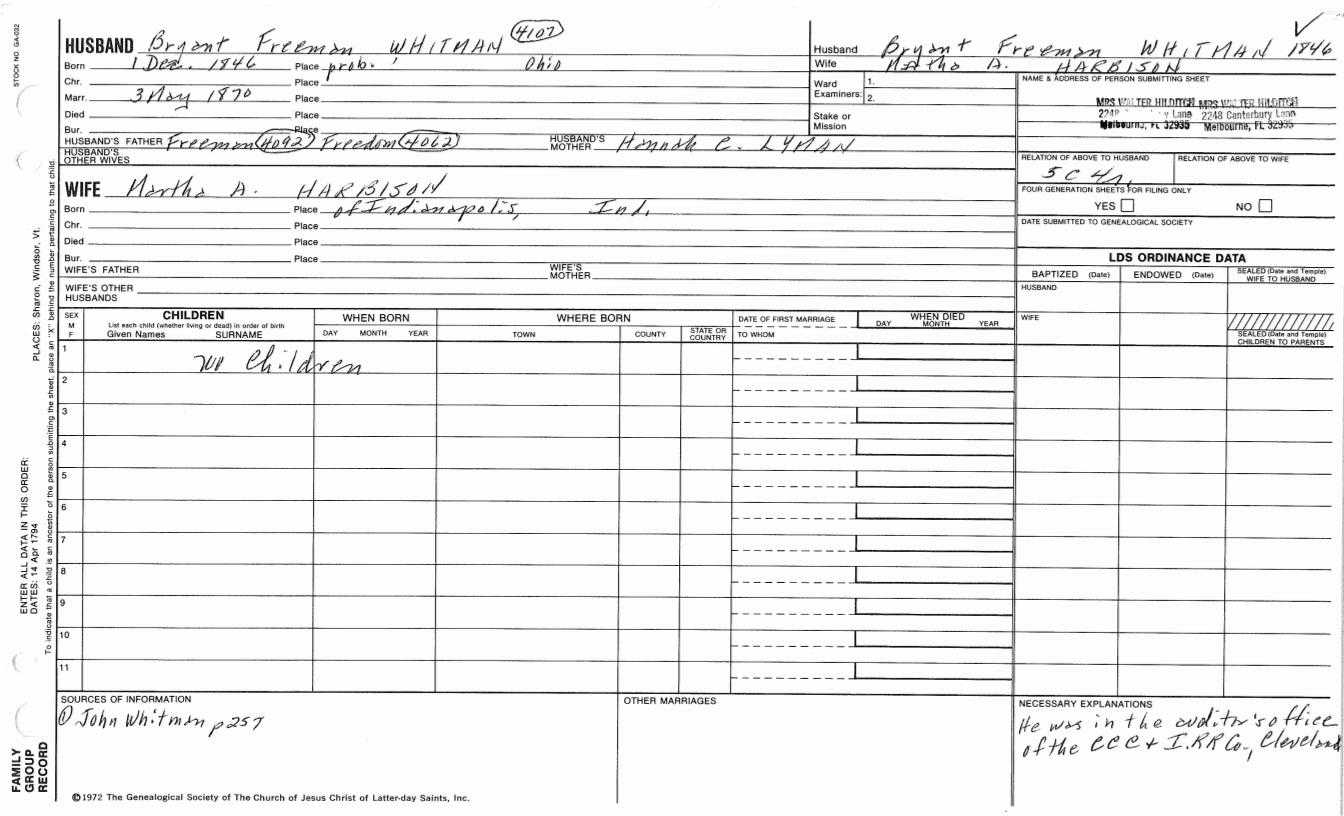 STOCK NO. GA-032
HUSBAND Bryant Freeman WHITMAN 4107
Born 1 Dec. 1846 Place prob. , Ohio
Chr. Place
Marr. 3 May 1870 Place
Died Place
Bur. Place
HUSBAND'S FATHER Freeman (4092) Freedom (4062) HUSBAND'S MOTHER Hannah C. LYMAN
HUSBAND'S OTHER WIVES
WIFE Martha A. HARBISON
Born Place of Indianapolis, Ind.
Chr. Place
Died Place
Bur. Place
WIFE'S FATHER WIFE'S MOTHER
WIFE'S OTHER HUSBANDS
Husband Bryant Freeman WHITMAN 1846
Wife Martha A. HARBISON
Ward Examiners: 1. 2.
Stake or Mission
NAME & ADDRESS OF PERSON SUBMITTING SHEET
MRS WALTER HILDITCH MRS WALTER HILDITCH
2248 Lane 2248 Canterbury Lane
Melbourne, FL 32935 Melbourne, FL 32935
RELATION OF ABOVE TO HUSBAND RELATION OF ABOVE TO WIFE
5C 4r.
FOUR GENERATION SHEETS FOR FILING ONLY
YES NO
DATE SUBMITTED TO GENEALOGICAL SOCIETY
LDS ORDINANCE DATA
BAPTIZED (Date) ENDOWED (Date) SEALED (Date and Temple) WIFE TO HUSBAND
HUSBAND
WIFE
SEALED (Date and Temple) CHILDREN TO PARENTS
SEX M F
CHILDREN
List each child (whether living or dead) in order of birth
Given Names SURNAME
WHEN BORN
DAY MONTH YEAR
WHERE BORN
TOWN COUNTY STATE OR COUNTRY
DATE OF FIRST MARRIAGE
TO WHOM
WHEN DIED
DAY MONTH YEAR
1 no Children
2
3
4
5
6
7
8
9
10
11
SOURCES OF INFORMATION
① John Whitman p 257
OTHER MARRIAGES
NECESSARY EXPLANATIONS
He was in the auditor's office
of the CCC & I. RR Co., Cleveland
©1972 The Genealogical Society of The Church of Jesus Christ of Latter-day Saints, Inc.
PLACES: Sharon, Windsor, Vt.
ENTER ALL DATA IN THIS ORDER:
DATES: 14 Apr 1794
To indicate that a child is an ancestor of the person submitting the sheet, place an "X" behind the number pertaining to that child.
FAMILY
GROUP
RECORD